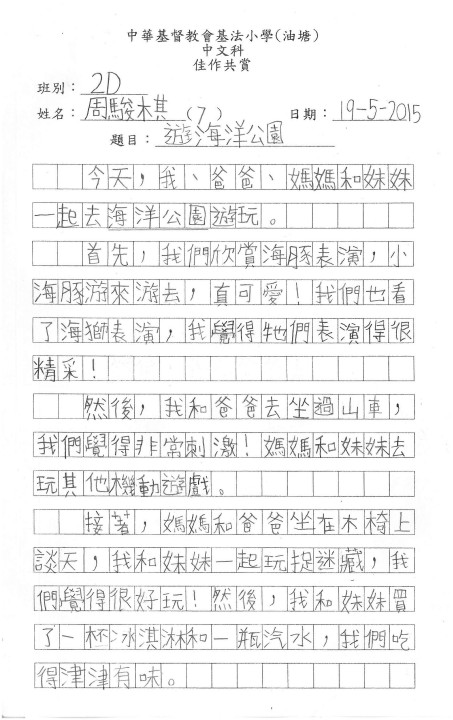 中華基督教會基法小學(油塘)
中文科
佳作共賞
班別：2D
姓名：周駿棋(7) 日期：19-5-2015
題目：遊海洋公園
今天，我、爸爸、媽媽和妹妹
一起去海洋公園遊玩。
首先，我們欣賞海豚表演，小
海豚游來游去，真可愛！我們也看
了海獅表演，我覺得牠們表演得很
精采！
然後，我和爸爸去坐過山車，
我們覺得非常刺激！媽媽和妹妹去
玩其他機動遊戲。
接著，媽媽和爸爸坐在木椅上
談天，我和妹妹一起玩捉迷藏，我
們覺得很好玩！然後，我和妹妹買
了一杯冰淇淋和一瓶汽水，我們吃
得津津有味。